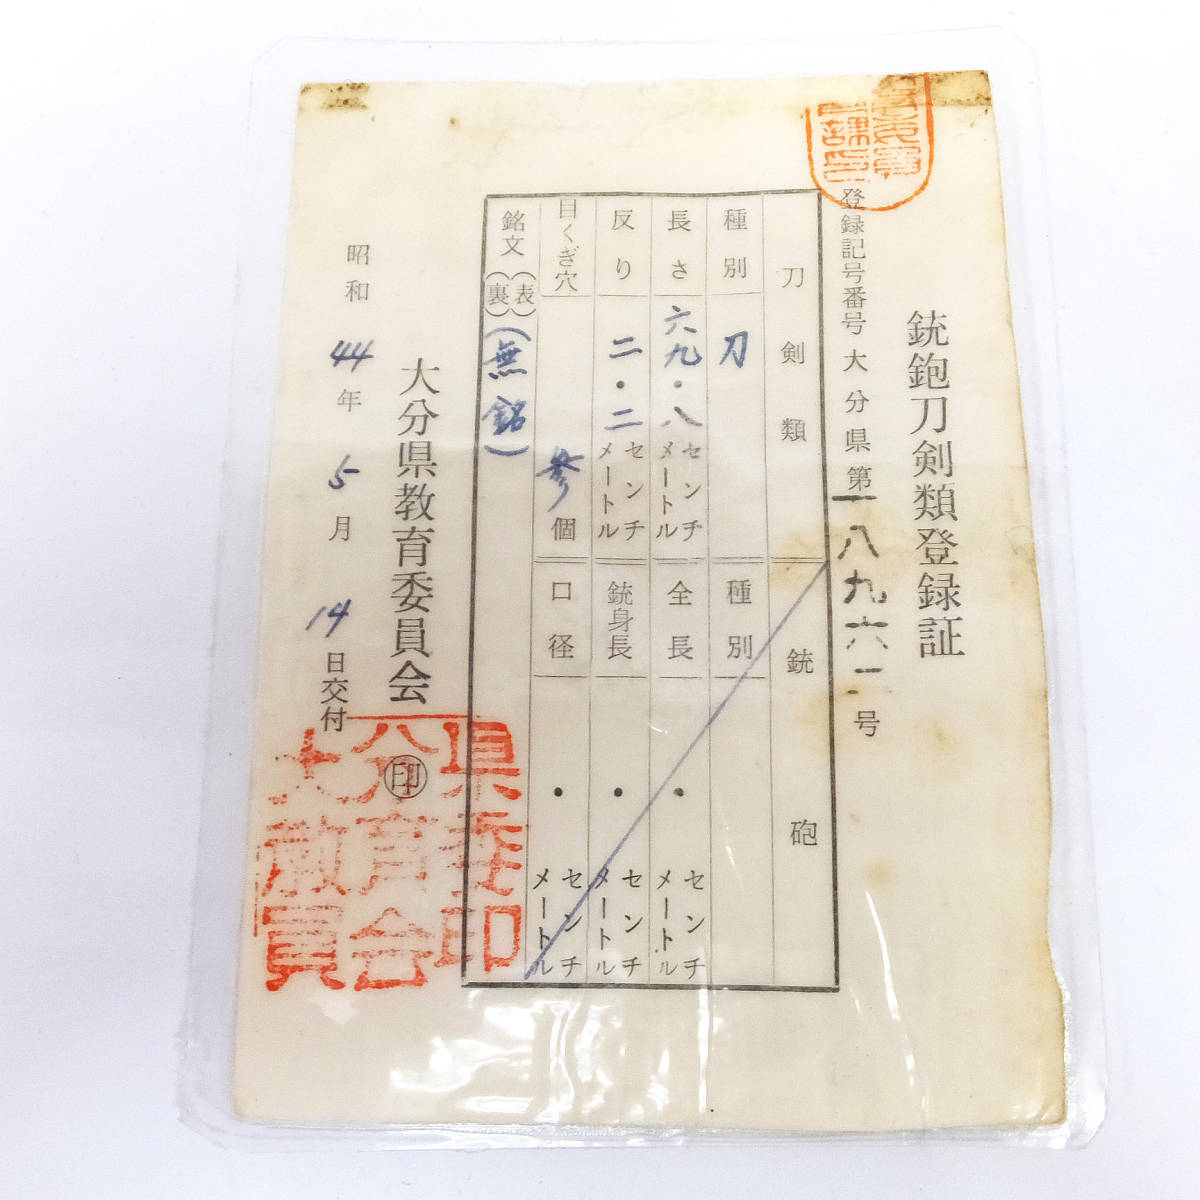 銃砲刀剣類登録証
登録記号番号 大分県 第一八九六二号
刀剣類
種別 刀
長さ 六九・八 センチメートル
反り 二・二 センチメートル
目くぎ穴 参個
銘文 (表) (裏) (無銘)
銃砲
種別
全長 ・ センチメートル
銃身長 ・ センチメートル
口径 ・ センチメートル
大分県教育委員会 ㊞
昭和44年5月14日交付
県委印
分育会
大教員